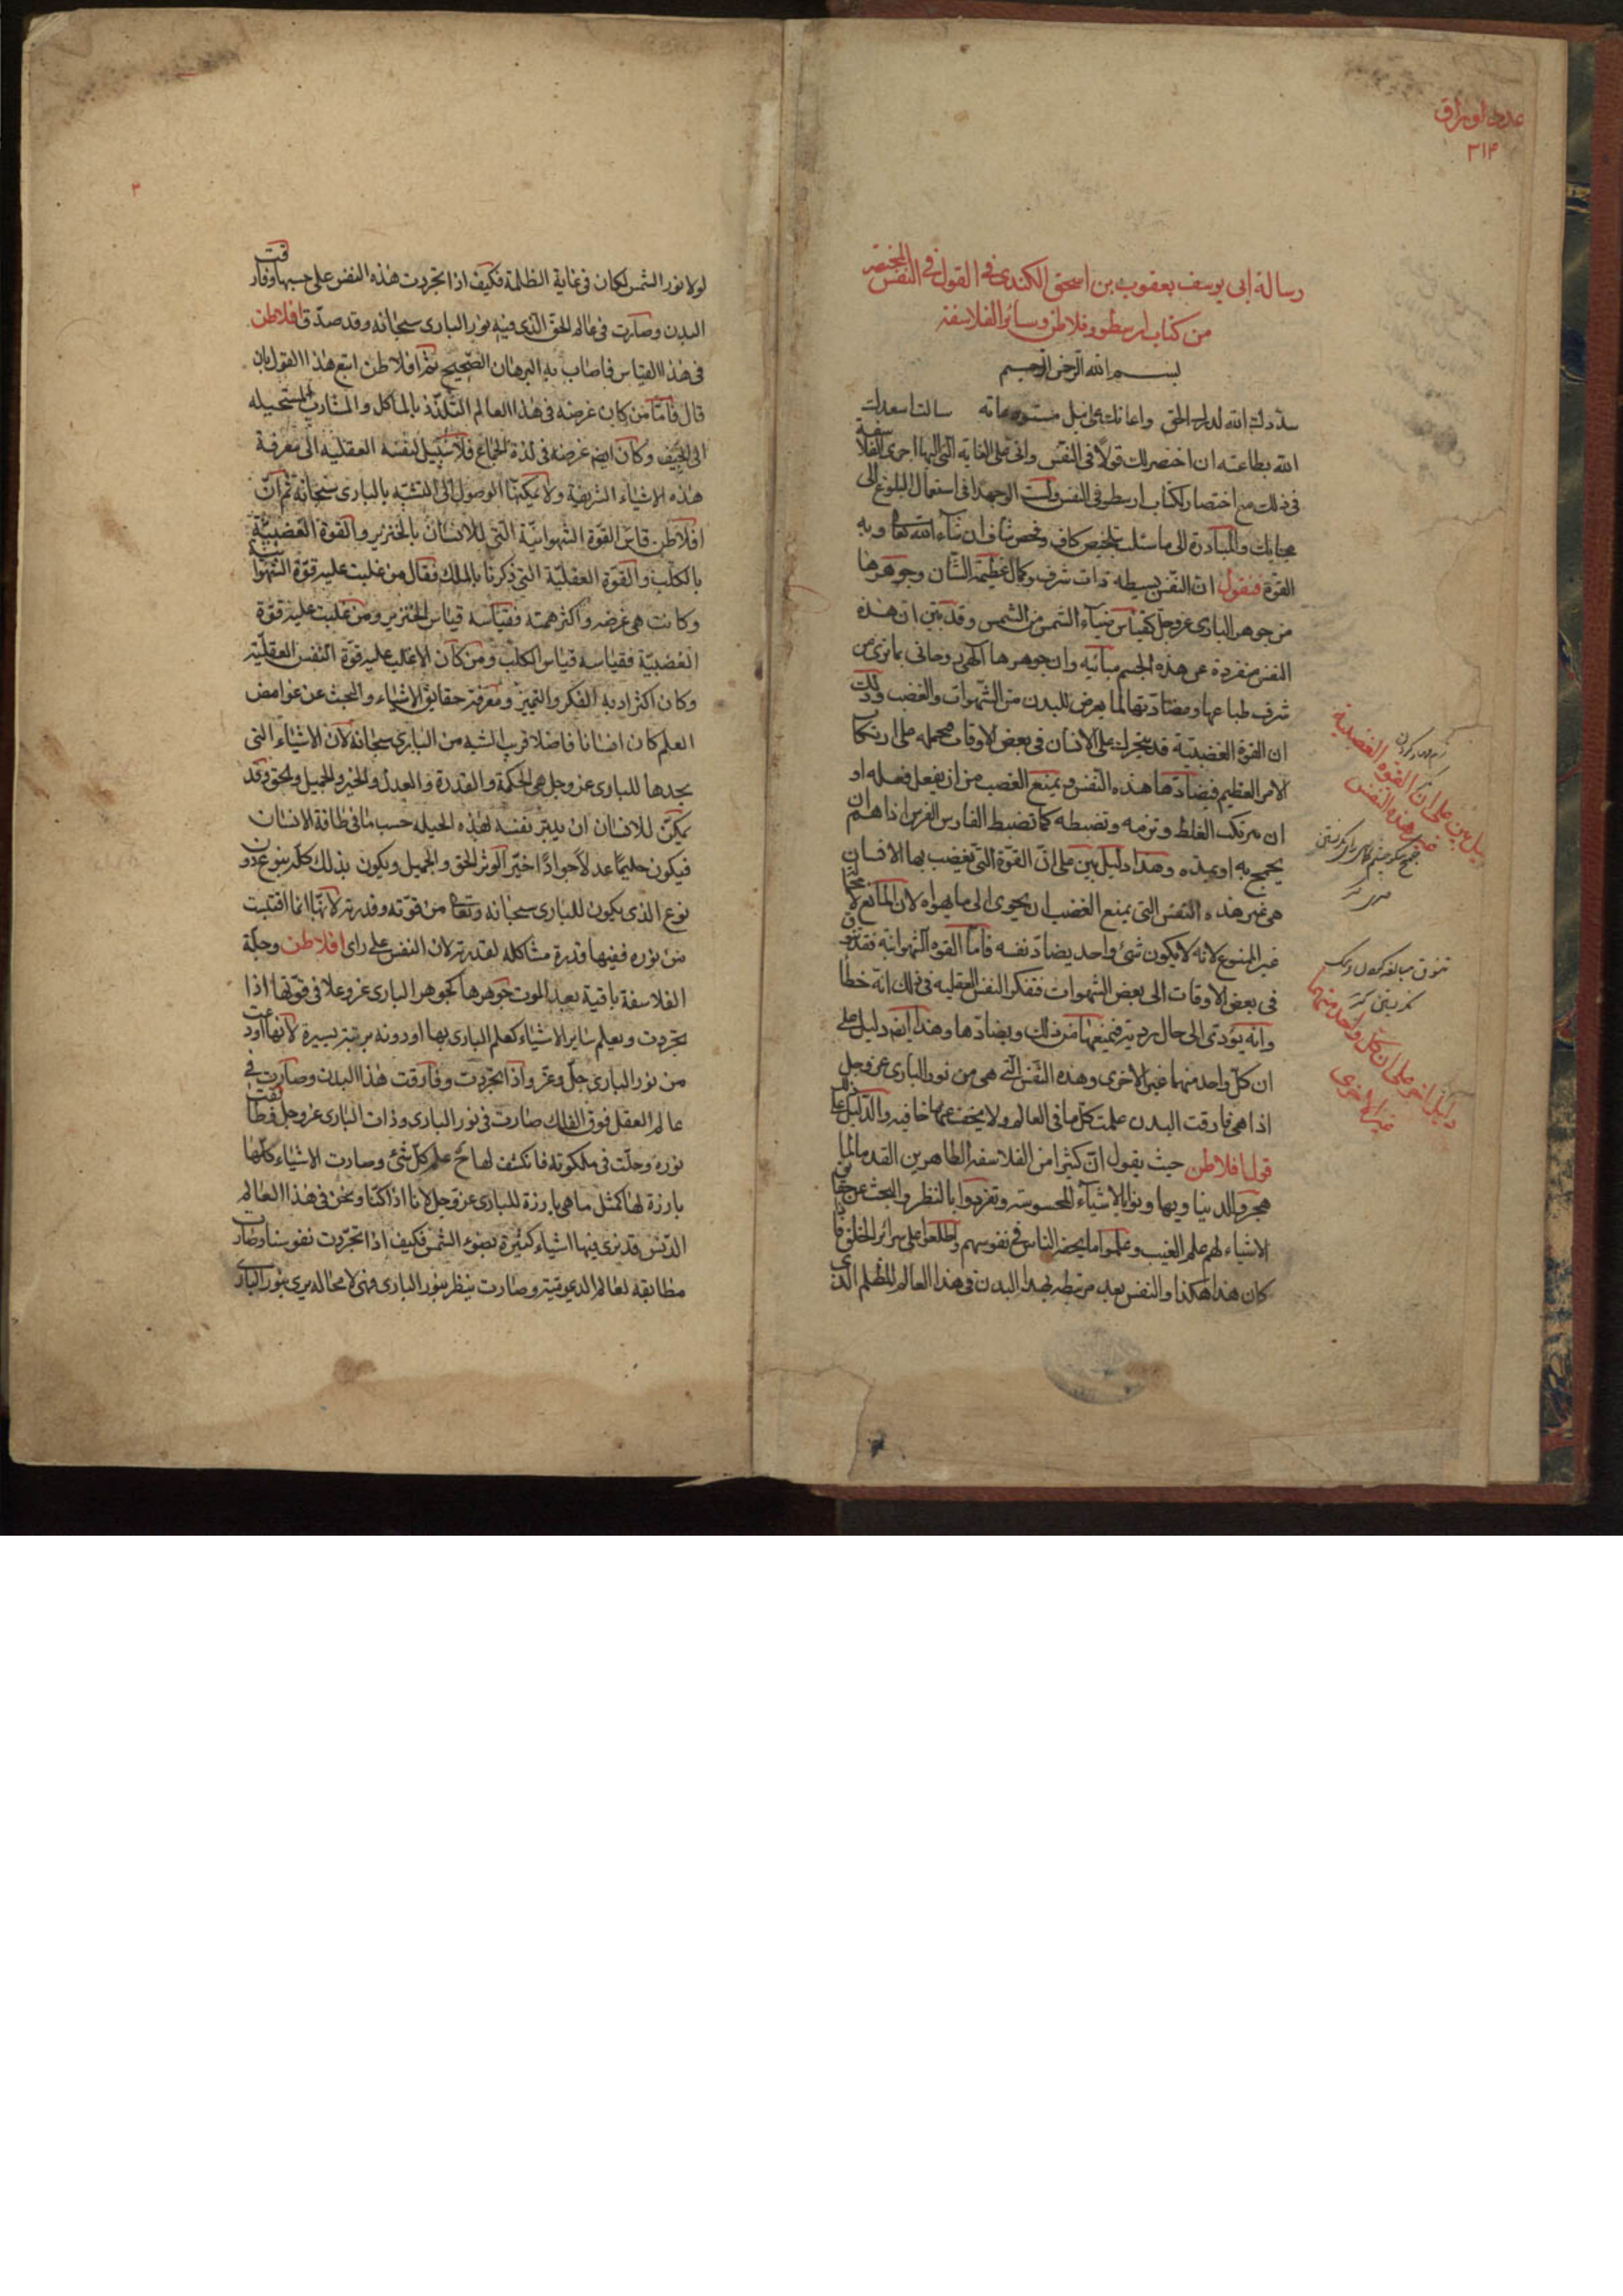 عدد اوراق
٣١۴
رسالة ابى يوسف يعقوب بن اسحق الكندى فى القول فى النفس المختصر
من كتاب ارسطو وفلاطن وسائر الفلاسفة
بسم الله الرحمن الرحيم
سددك الله لدرك الحق واعانك على نيل مستوعراته سالت اسعدك
الله بطاعته ان اختصر لك قولا فى النفس واتى على الغاية التى اليها اجرى الفلاسفة
فى ذلك مع اختصار لكتاب ارسطو فى النفس ولست الو جهدا فى استعمال البلوغ الى
محابك والمبادرة الى ما سئلت بتلخيص كاف وفحص شاف ان شاء الله تعا وبه
القوة فنقول ان النفس بسيطة ذات شرف وكمال عظيمة الشان وجوهرها
من جوهر البارى عز وجل كقياس ضياء الشمس من الشمس وقد بين ان هذه
النفس منفردة عن هذه الجسم مباينه وان جوهرها الهى روحانى بما نرى من
شرف طباعها ومضادتها لما يعرض للبدن من الشهوات والغضب وذلك
ان القوة الغضبية قد يتحرك على الانسان فى بعض الاوقات فتحمله على ارتكاب
الامر العظيم فيضادها هذه النفس ويمنع الغضب من ان يفعل فعله او
ان يرتكب الغلظ وترمه وتضبطه كما تضبط الفارس الفرس اذا هم ان
يجمح به او يمده وهذا دليل بين على ان القوة التى يغضب بها الانسان
هى غير هذه النفس التى يمنع الغضب ان يجوى الى ما يهواه لان المانع لا محة
غير الممنوع لانه لا يكون شئ واحد يضاد نفسه فاما القوه الشهوانية فقد تتوق
فى بعض الاوقات الى بعض الشهوات ففكر النفس العقلية فى ذلك انه خطأ
وانه يؤدى الى حال ردية فيمنعها من ذلك ويضادها وهذا ايضا دليل على
ان كل واحد منهما غير الاخرى وهذه النفس التى هى من نور البارى عز وجل
اذا هى فارقت البدن علمت كل ما فى العالم ولا يخف عنها خافية والدليل على ذلك
قول افلاطن حيث يقول ان كثيرا من الفلاسفة الطاهرين القدما لما
هجروا الدنيا وتهاونوا بالاشياء المحسوسة وتفردوا بالنظر والبحث عن حقايق
الاشياء لهم علم الغيب وعلموا ما يحضر الناس فى نفوسهم واطلعوا على سرائر الخلق فاذا
كان هذا هكذا والنفس بعد مرتبطة بهذا البدن فى هذا العالم المظلم الذى
دليل بين على ان القوه الغضبية
غير هذه النفس
دليل اخر على ان كل واحد منهما
غير الاخرى
٢
لولا نور الشمس لكان فى غاية الظلمة فكيف اذا تجردت هذه النفس على حسبها وفارقت
البدن وصارت فى عالم الحق الذى فيه نور البارى سبحانه وقد صدق افلاطن
فى هذا القياس فاصاب به البرهان الصحيح ثم افلاطن اتبع هذا القول بان
قال فاما من كان غرضه فى هذا العالم التلذذ بالماكل والمشارب المستحيله
الى الجيف وكان ايض غرضه فى لذة الجماع فلا سبيل لنفسه العقلية الى معرفة
هذه الاشياء الشريفة ولا يمكنها الوصول الى التشبه بالبارى سبحانه ثم ان
افلاطن قاس القوة الشهوانية التى للانسان بالخنزير والقوة الغضبية
بالكلب والقوة العقلية التى ذكرنا بالملك فقال من غلبت عليه قوة الشهوانية
وكانت هى غرضه واكثر همته فقياسه قياس الخنزير ومن غلبت عليه قوة
الغضبية فقياسه قياس الكلب ومن كان الاغلب عليه قوة النفس العقلية
وكان اكثر ادبه الفكر والتمييز ومعرفة حقايق الاشياء والبحث عن غوامض
العلم كان انسانا فاضلا قريب الشبه من البارى سبحانه لان الاشياء التى
نجدها للبارى عز وجل هى الحكمة والقدرة والعدل والخير والجميل والحق وقد
يمكن للانسان ان يدبر نفسه لهذه الحيلة حسب ما فى طاقة الانسان
فيكون حليما عدلا جوادا خيرا يوثر الحق والجميل ويكون بذلك كله بنوع دون
نوع الذى يكون للبارى سبحانه وتعا من قوته وقدرته لانها انما اقتبست
من نوره ففيها قدرة مشاكله لقدرته لان النفس على راى افلاطن وجلة
الفلاسفة باقية بعد الموت جوهرها كجوهر البارى عز وعلا فى قوتها اذا
تجردت ويعلم ساير الاشياء كعلم البارى بها او دونه برتبة يسيرة لانها اودعت
من نور البارى جل وعز واذا تجردت وفارقت هذا البدن وصارت فى
عالم العقل فوق الفلك صارت فى نور البارى وذات البارى عز وجل وطابقت
نوره وحلت فى ملكوته فانكشف لها ح علم كل شئ وصارت الاشياء كلها
بارزة لها كمثل ما هى بارزة للبارى عز وجل لانا اذا كنا ونحن فى هذا العالم
الدنس قد نرى فيها اشياء كثيرة بضوء الشمس فكيف اذا تجردت نفوسنا وصارت
مطابقة لعالم الديمومية وصارت ينظر بنور البارى فهى لا محالة يرى بنور البارى